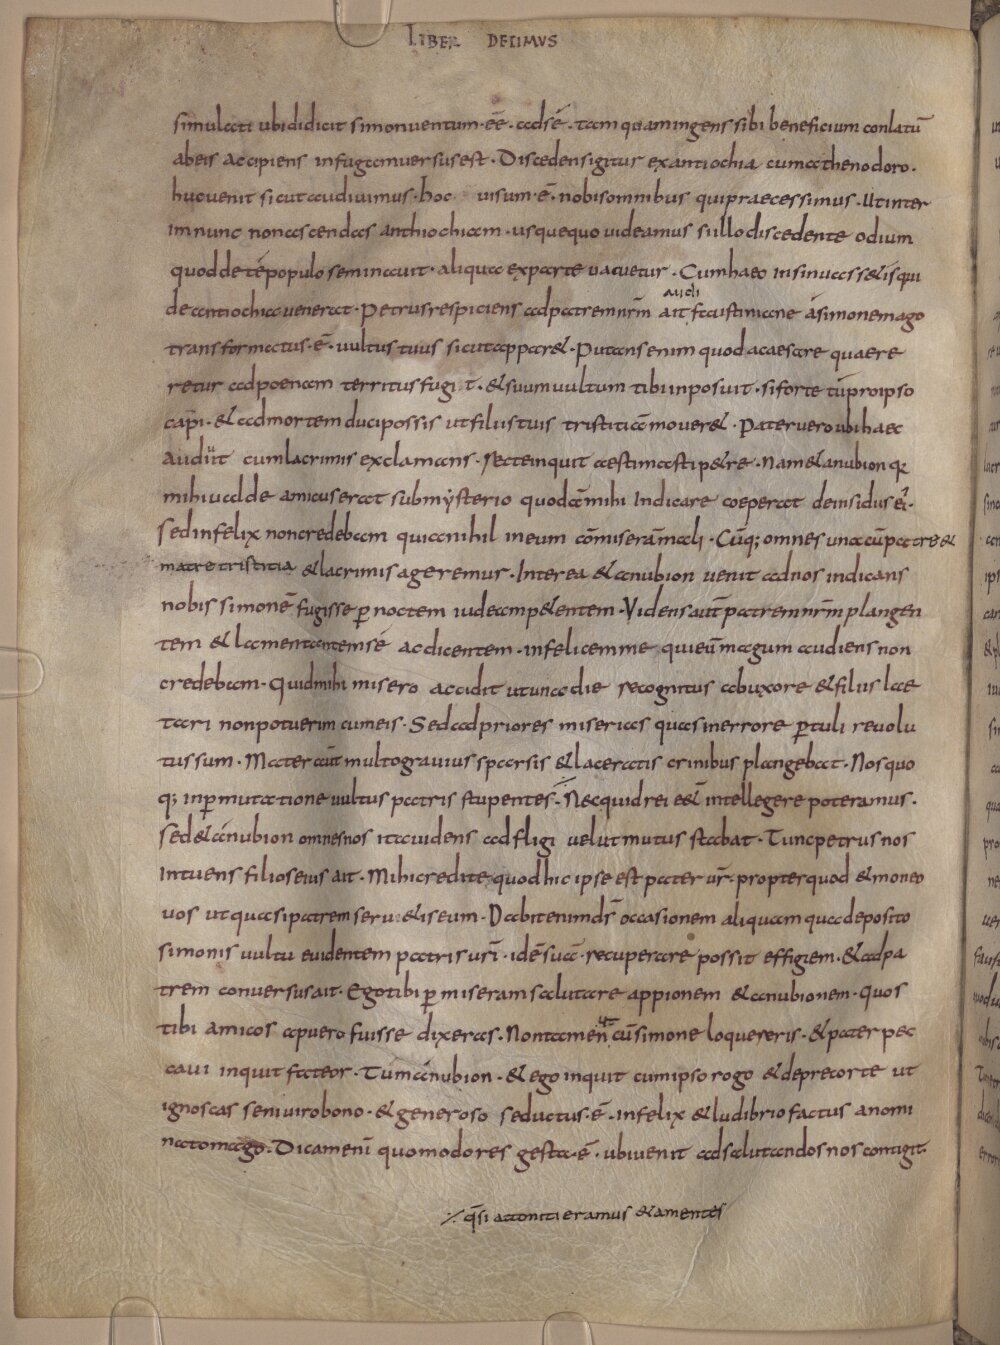 LIBER DECIMUS
simulati ubi didicit simon uentum · ēē · ad sē · tam quam ingens sibi beneficium conlatū
ab eis accipiens in fugam uersus est · Discedens igitur ex antiochia cum athenodoro ·
huc uenit sicut audiuimus · hoc uisum · ē · nobis omnibus qui praecessimus · Ut inter
im nunc non ascendas anthiochiam · usquequo uideamus si illo discedente odium
quod de tē populo seminauit · aliqua ex parte uacuetur · Cum haec insinuasset is qui
de antiochia uenerat · Petrus respiciens ad patrem nr̄m ait faustiniane a simone mago
audi
transformatus · ē · uultus tuus sicut apparet · Putans enim quod a caesare quaere
retur ad poenam territus fugi t · et suum uultum tibi inposuit · si forte tū pro ipso
capi · et ad mortem duci possis ut filiis tuis tristitiā moueret · Pater uero ubi haec
audiit cum lacrimis exclamans · recte inquit aestimasti petre · Nam et anubion qui
mihi ualde amicus erat sub mẏsterio quodā mihi Indicare coeperat de insidiis ei ·
sed infelix non credebam quia nihil in eum cōmiserā mali · Cūq; omnes una cū patre et
matre tristitia et lacrimis ageremus · Interea et anubion uenit ad nos indicans
nobis simonē fugisse ꝑ noctem iudeam petentem · Videns aut̄ patrem nr̄m plangen
tem et lamentantem sé ac dicentem · infelicem me qui eū magum audiens non
credebam · Quid mihi misero accidit ut una die recognitus ab uxore et filiis lae
tari non potuerim cum eis · Sed ad priores miserias quas in errore ꝑtuli reuolu
tus sum · Mater aut̄ multo grauius sparsis et laceratis crinibus plangebat · Nos quo
q; in ꝑmutatione uultus patris stupentes · ⁒ Nec quid rei eēt intellegere poteramus ·
sed et anubion omnes nos ita uidens adfligi uelut mutus stabat · Tunc petrus nos
Intuens filios eius ait · Mihi credite quod hic ipse est pater ur̄ · propter quod et moneo
uos ut quasi patrem seruetis eum · Dabit enim dś occasionem aliquam qua deposito
simonis uultu euidentem patris uri · idē suā recuperare possit effigiem · et ad pa
trem conuersus ait · Ego tibi ꝑmiseram salutare appionem et anubionem · quos
tibi amicos a puero fuisse dixeras · Non tamen ut cū simone loquereris · et pater pec
caui inquit fateor · Tum anubion · et ego inquit cum ipso rogo et deprecor te ut
ignoscas seni uiro bono · et generoso seductus · ē · infelix et ludibrio factus a nomi
nato mago · Dicam enī quomodo res gesta · ē · ubi uenit ad salutandos nos contigit ·
⁒ q̄si attoniti eramus et amentes